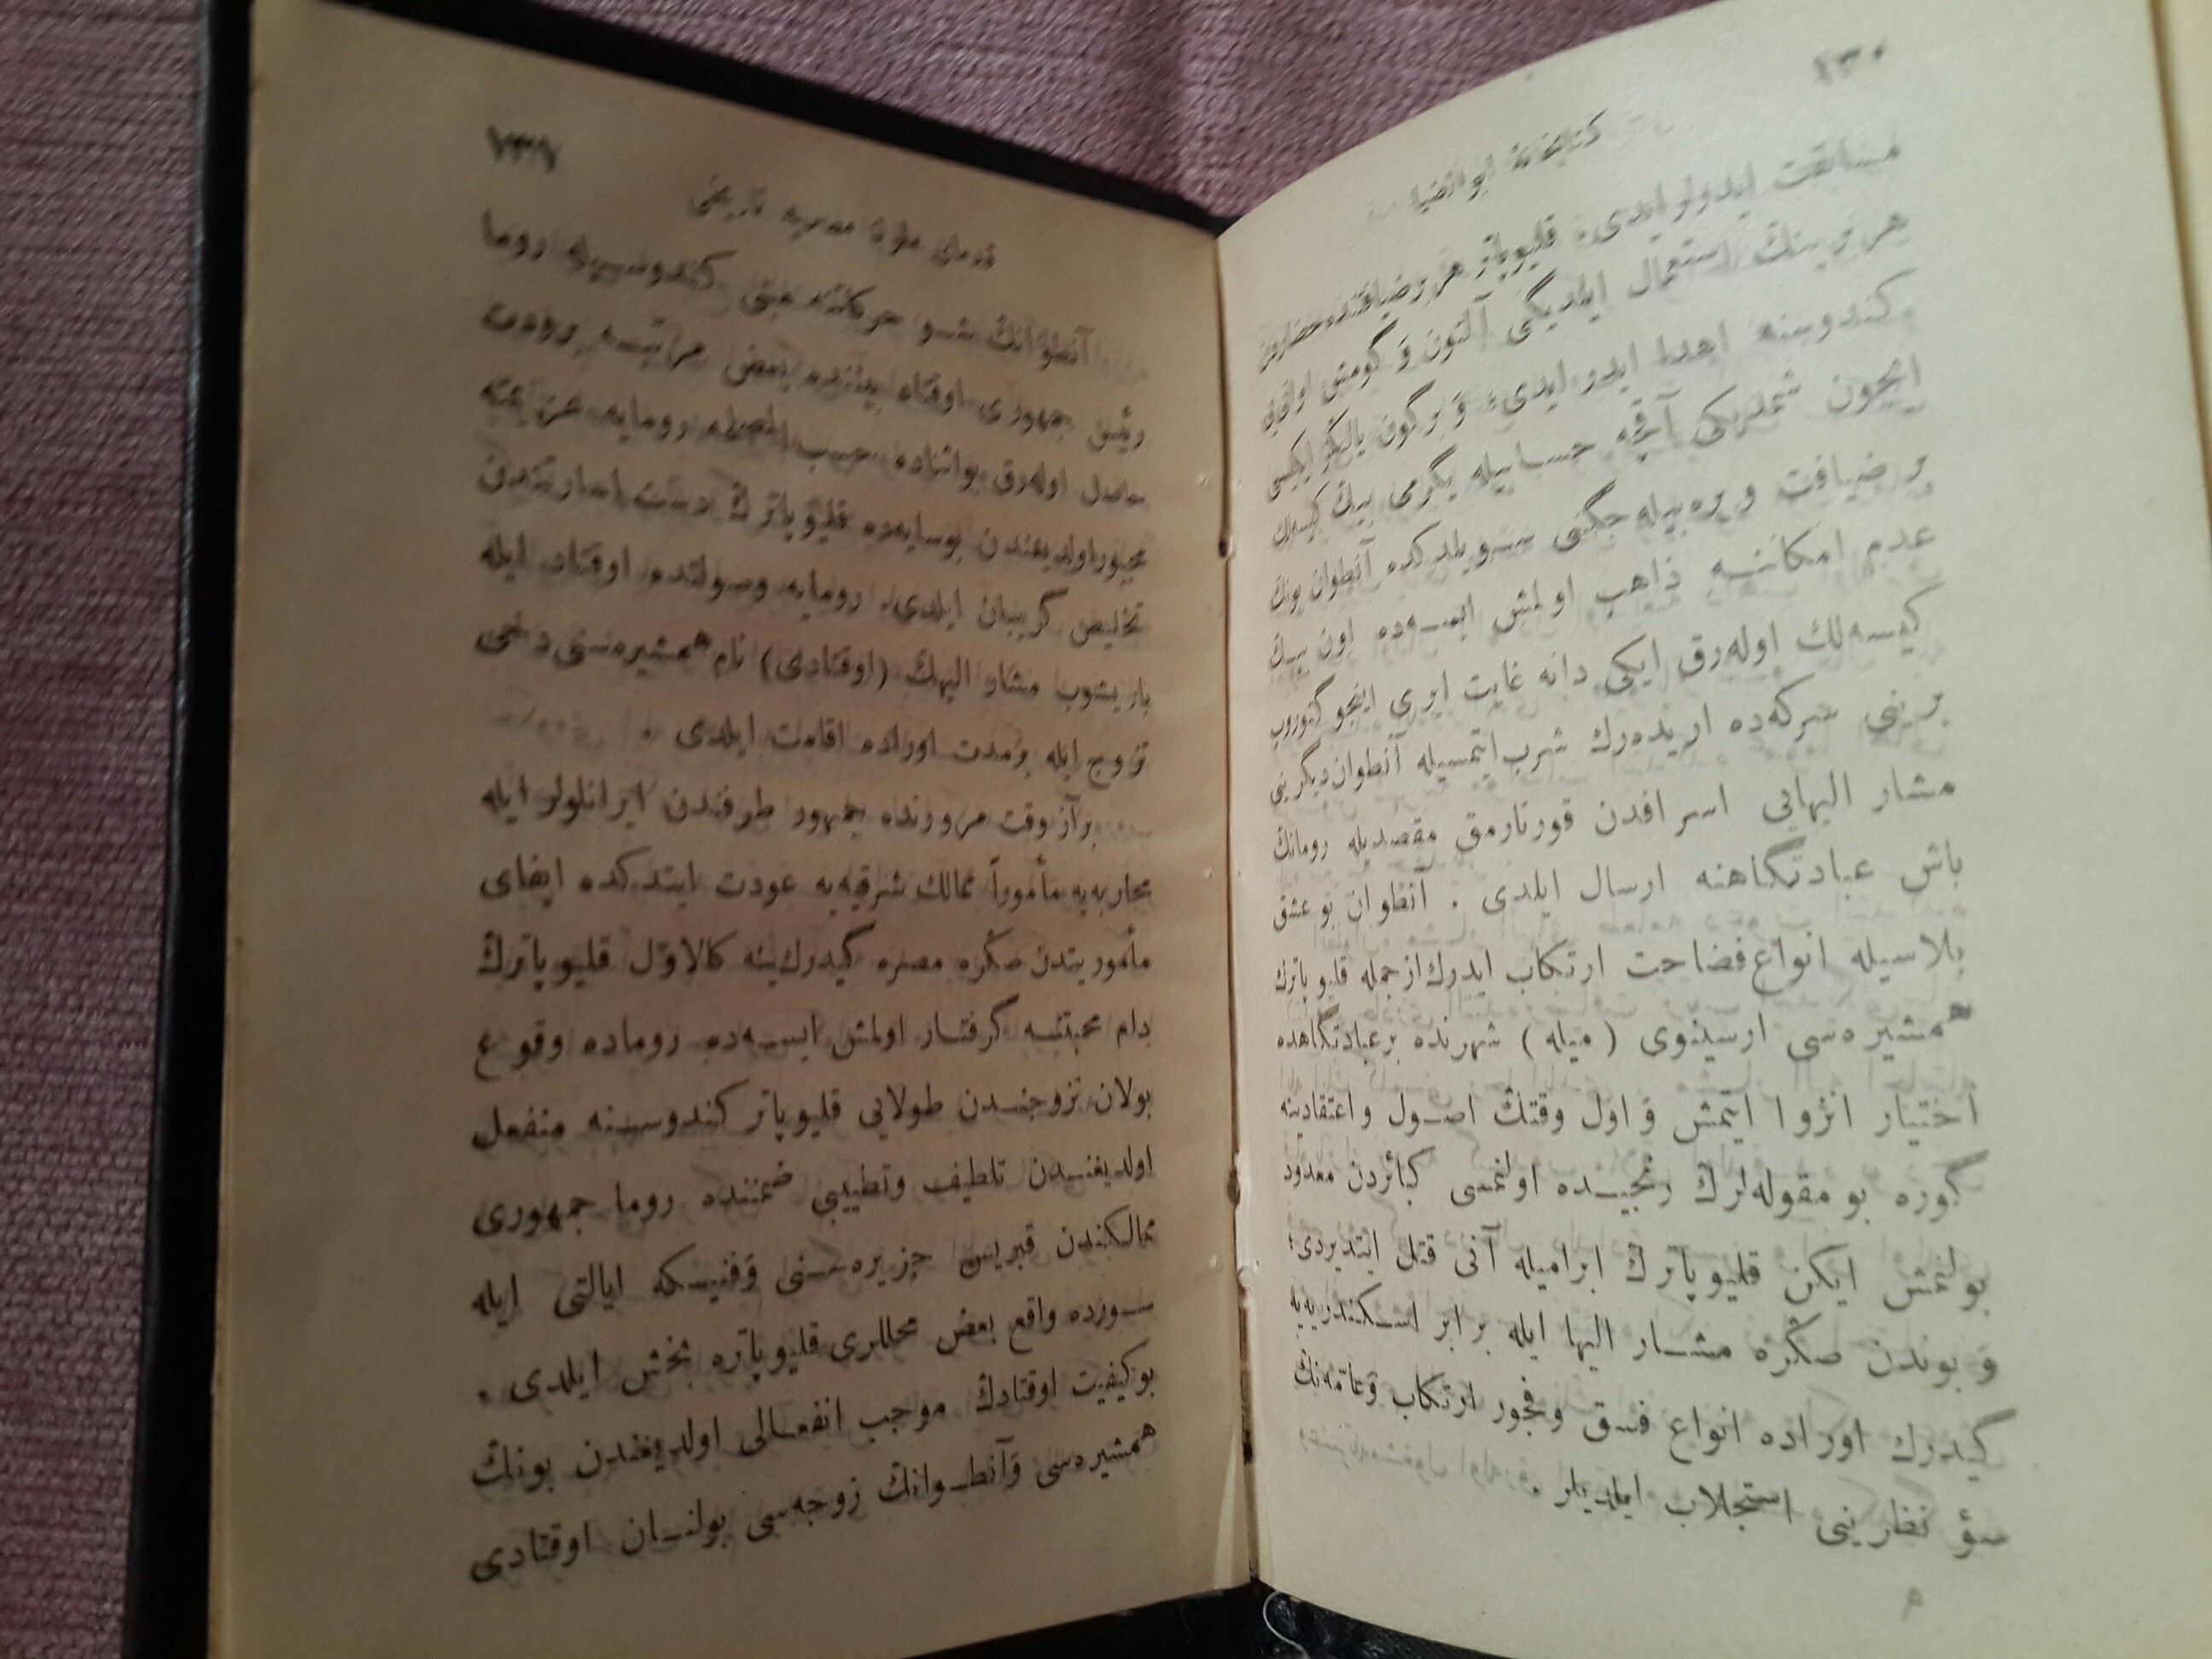 ١٣٠
كتابخانهٔ ابوالضيا
مسابقت ايدولر ايدى. قليوپاتر هر بر ضيافتده حضاردن
هر برينك استعمال ايلديگى آلتون و گومش اوانى
كندوسنه اهدا ايدر ايدى؛ و برگون يالكز ايكيسى
ايچون شمديكى آقچه حسابيله يگرمى بيك كيسه‌لك
بر ضيافت ويره‌بيله‌جگنى سويلدكده آنطوان بونك
عدم امكاننه ذاهب اولمش ايسه‌ده اون بيك
كيسه‌لك اوله‌رق ايكى دانه غايت ايرى اينجو گتوروب
برينى سركه‌ده اريده‌رك شرب ايتمسيله آنطوان ديگرينى
مشار اليهايى اسرافدن قورتارمق مقصديله رومانك
باش عبادتگاهنه ارسال ايلدى . آنطوان بو عشق
بلاسيله انواع فضاحت ارتكاب ايدرك ازجمله قليوپاترك
همشيره‌سى ارسينوى ( ميله ) شهرنده بر عبادتگاهده
اختيار انزوا ايتمش و اول وقتك اصول و اعتقادينه
گوره بو مقوله‌لرك رنجيده اولنمسى كبائردن معدود
بولنمش ايكن قليوپاترك ابراميله آنى قتل ايتديردى؛
و بوندن صكره مشار اليها ايله برابر اسكندريه‌يه
گيدرك اوراده انواع فسق و فجور ارتكاب و عامه‌نك
سؤ نظرينى استجلاب ايلديلر .
٩
١٣١
قدماى ملوك مصريه تاريخى
آنطوانك شو حركاتنه مبنى كندوسيله روما
رئيس جمهورى اوقتاه بيننده بعض مرتبه برودت
حاصل اوله‌رق بواثناده حسب رومايه عزيمته
مجبور اولديغندن بوسايه‌ده قليوپاترك دست اسارتندن
تخليص گريبان ايلدى. رومايه وصولنده اوقتاد ايله
باريشوب مشار اليهك (اوقتادى) نام همشيره‌سنى دخى
تزوج ايله برمدت اوراده اقامت ايلدى .
برآز وقت مرورنده جمهور طرفندن ايرانلولر ايله
محاربه‌يه مأموراً ممالك شرقيه‌يه عودت ايتدكده ايفاى
مأموريتدن صكره مصره گيدرك ينه كالاول قليوپاترك
دام محبتنه گرفتار اولمش ايسه‌ده روماده وقوع
بولان تزوجندن طولايى قليوپاتر كندوسنه منفعل
اولديغندن تلطيف وتطييبى ضمننده روما جمهورى
ممالكندن قبريس جزيره‌سنى و فنيكه ايالتى ايله
سورده واقع بعض محللرى قليوپاتره بخش ايلدى .
بوكيفيت اوقتادك موجب انفعالى اولديغندن بونك
همشيره‌سى و آنطوانك زوجه‌سى بولنان اوقتادى